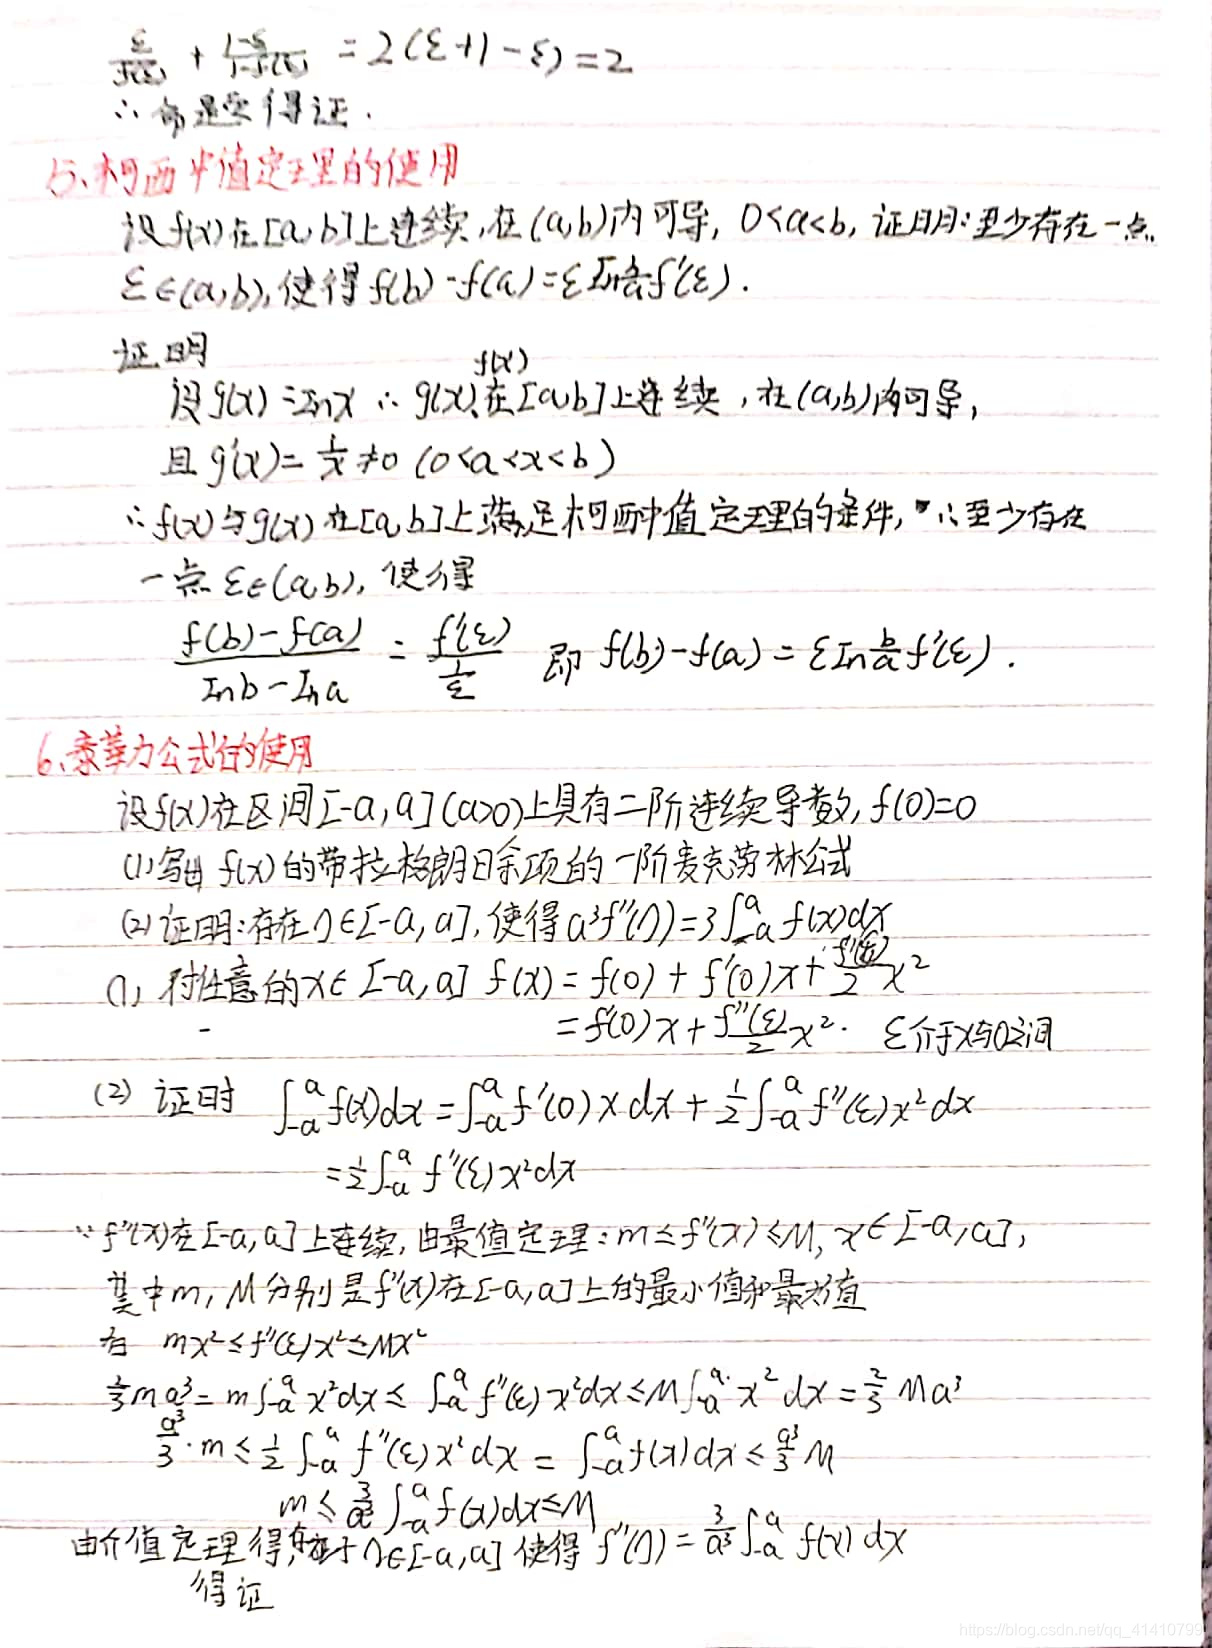 ε/f(ξ) + 1-ξ/1-f(ξ) = 2(ε+1-ε)=2
∴命题要得证.
5、柯西中值定理的使用
设f(x)在[a,b]上连续,在(a,b)内可导, 0<a<b, 证明:至少存在一点
ε∈(a,b),使得f(b)-f(a)=εIn b/a f'(ε).
证明
f(x)
设g(x)=Inx ∴g(x)、在[a,b]上连续,在(a,b)内可导,
且g'(x)=1/x≠0 (0<a<x<b)
∴f(x)与g(x)在[a,b]上满足柯西中值定理的条件, ∴至少存在
一点ε∈(a,b), 使得
f(b)-f(a)/Inb-Ina = f'(ε)/(1/ε) 即 f(b)-f(a)=εIn b/a f'(ε).
6、泰勒公式的使用
设f(x)在区间[-a,a](a>0)上具有二阶连续导数,f(0)=0
(1)写出f(x)的带拉格朗日余项的一阶麦克劳林公式
(2)证明:存在η∈[-a,a],使得a³f''(η)=3∫_{-a}^{a} f(x)dx
(1) 对任意的x∈[-a,a] f(x)=f(0)+f'(0)x+f''(ξ)/2 x²
=f'(0)x+f''(ε)/2 x². ε介于x与0之间
(2) 证明 ∫_{-a}^{a} f(x)dx=∫_{-a}^{a} f'(0)xdx+1/2∫_{-a}^{a} f''(ε)x²dx
=1/2∫_{-a}^{a} f''(ε)x²dx
∵f''(x)在[-a,a]上连续,由最值定理:m≤f''(x)≤M, x∈[-a,a],
其中m,M分别是f''(x)在[-a,a]上的最小值和最大值
有 mx²≤f''(ε)x²≤Mx²
2/3 ma³=m∫_{-a}^{a} x²dx≤∫_{-a}^{a} f''(ε)x²dx≤M∫_{-a}^{a} x²dx=2/3 Ma³
a³/3·m≤1/2∫_{-a}^{a} f''(ε)x²dx=∫_{-a}^{a} f(x)dx≤a³/3 M
m≤3/a³∫_{-a}^{a} f(x)dx≤M
由介值定理得,存在η∈[-a,a]使得f''(η)=3/a³∫_{-a}^{a} f(x)dx
得证
https://blog.csdn.net/qq_41410799